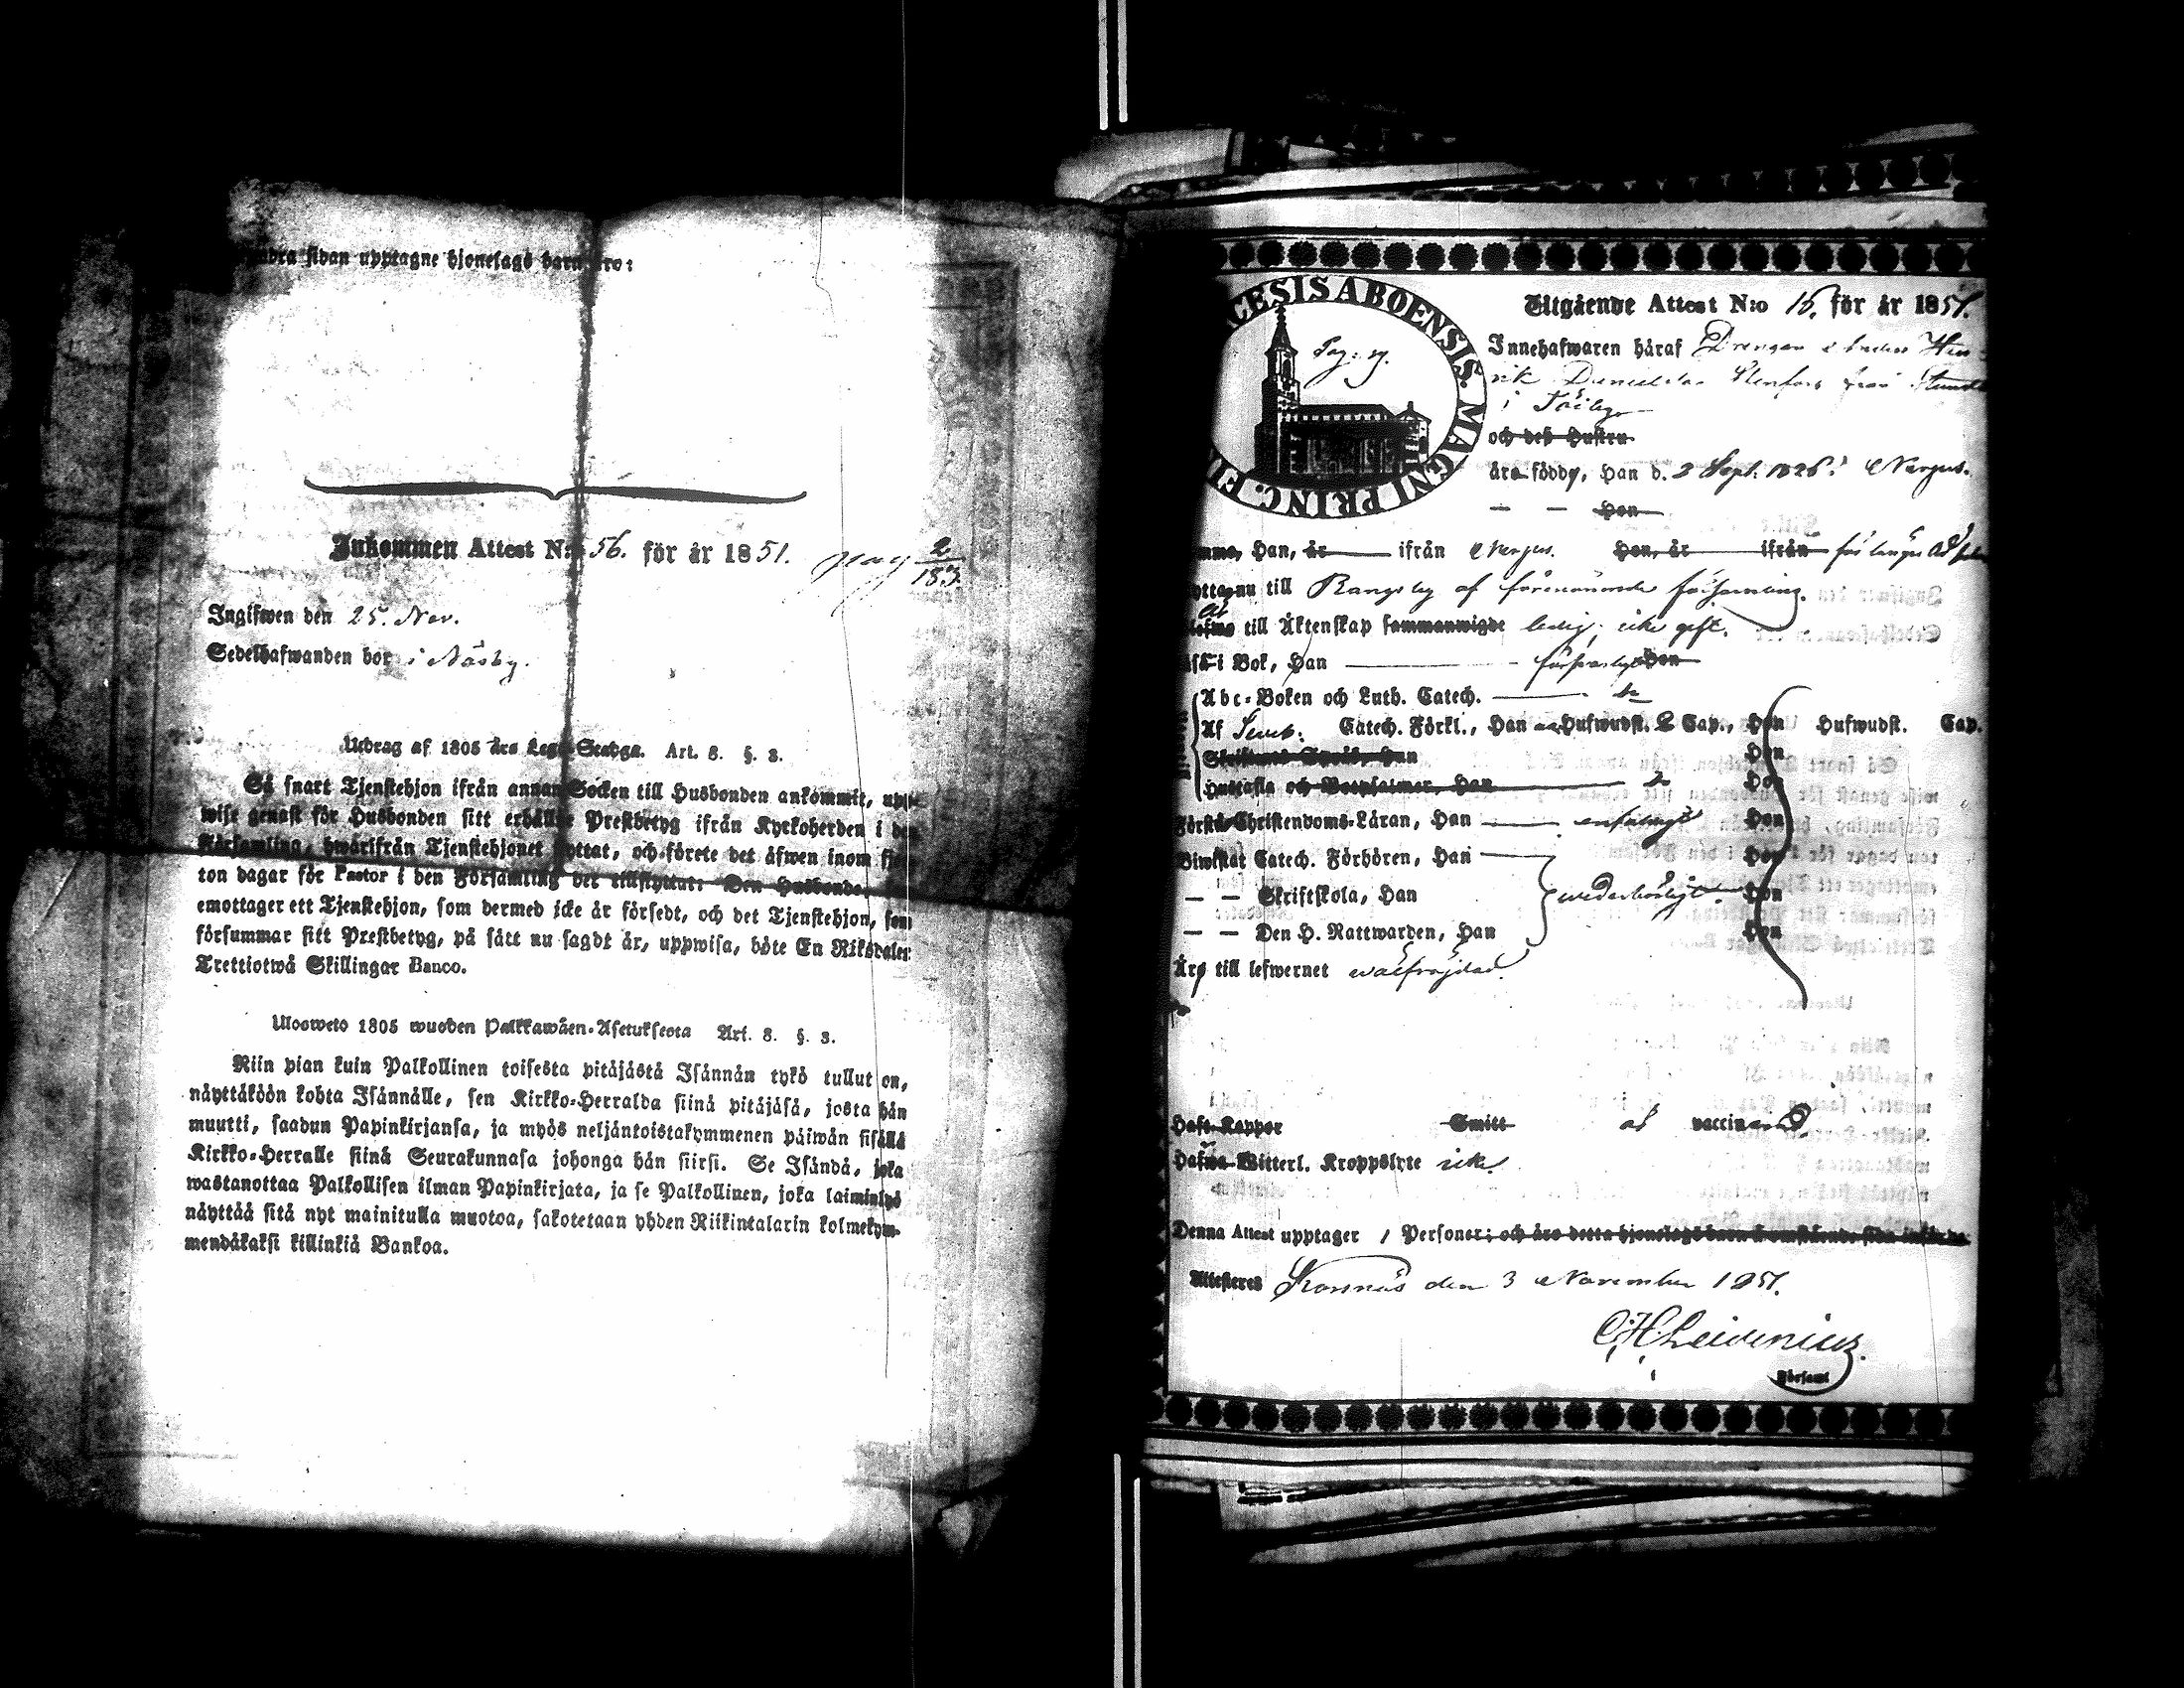 dra sidan upptagne hjonelags barn äro:
Inkommen Attest N:o 56. för år 1851. pag 2/183
Ingifwen den 25. Nov.
Sedelhafwanden bor i Näsby.
Utdrag af 1805 års Lego-Stadga. Art. 8. §. 3.
Så snart Tjenstehjon ifrån annan Socken till Husbonden ankommit, upp-
wise genast för Husbonden sitt erhållne Prestbetyg ifrån Kyrkoherden i den
Församling, hwarifrån Tjenstehjonet flyttat, och förete det äfwen inom fjor-
ton dagar för Pastor i den Församling det tillflyttat: Den Husbonde,
emottager ett Tjenstehjon, som dermed icke är försedt, och det Tjenstehjon, som
försummar sitt Prestbetyg, på sätt nu sagdt är, uppwisa, böte En Riksdaler
Trettiotwå Skillingar Banco.
Ulosweto 1805 wuoden Palkkawäen-Asetuksesta Art. 8. §. 3.
Niin pian kuin Palkollinen toisesta pitäjästä Isännän tykö tullut on,
näyttäköön kohta Isännälle, sen Kirkko-Herralda siinä pitäjäsä, josta hän
muutti, saadun Papinkirjansa, ja myös neljäntoistakymmenen päiwän sisällä
Kirkko-Herralle siinä Seurakunnasa johonga hän siirsi. Se Isändä, joka
wastanottaa Palkollisen ilman Papinkirjata, ja se Palkollinen, joka laiminlyö
näyttää sitä nyt mainitulla muotoa, sakotetaan yhden Riikintalarin kolmekym-
mendäkaksi killinkiä Bankoa.
CESIS ABOENSIS. MAGNI PRINC. FI
Utgående Attest N:o 16. för år 1851.
Innehafwaren häraf Drengen
rik Danielsson Stenfors från
i
och deß Hustru
äro födde, Han d. 2 Sept. 1826 i Nargus.
— — Hon
Han, år ifrån Nargus. Hon, år ifrån
nu till Rangsby af förenämnde församling.
till Äktenskap sammanwigde ledig, icke gift.
i Bok, Han försvarligt Hon
Abc-Boken och Luth. Catech.
Af Catech. Förkl., Han Hufwudst. 2 Cap., Hon Hufwudst. Cap.
Skriftens Språk, Han Hon
Hustafla och Botpsalmer, Han Hon
Förstå Christendoms-Läran, Han enfaldigt Hon
Biwistat Catech. Förhören, Han Hon
— — Skriftskola, Han wederbörligt. Hon
— — Den H. Nattwarden, Han Hon
Äro till lefwernet wälfräjdad.
Haft Koppor Smitt vaccinerad.
Hafwa Witterl. Kroppslyte icke
Denna Attest upptager 1 Personer; och äro detta hjonelags barn å omstående sida införde.
Attesteres Korsnäs den 3 November 1851.
CHLeidenius.
Församl